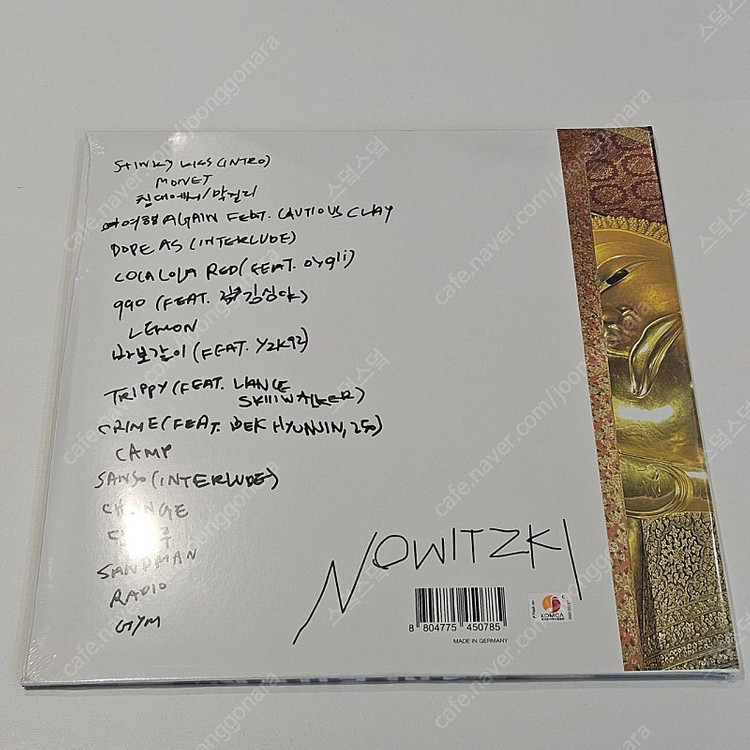 STINKY KISS (INTRO)
MONET
침대에서/막걸리
여행AGAIN FEAT. CAUTIOUS CLAY
DOPE AS (INTERLUDE)
COCA COLA RED (FEAT. oygli)
990 (FEAT. 김심야)
LEMON
바보같이 (FEAT. Y2K92)
TRIPPY (FEAT. LANCE
SKIIIWALKER)
CRIME (FEAT. BEK HYUNJIN, 250)
CAMP
SANSO (INTERLUDE)
CHANGE
SANDMAN
RADIO
GYM
NOWITZKI
8 804775 450785
KOMCA
MADE IN GERMANY
cafe.naver.com/joonggonara
스덕스덕